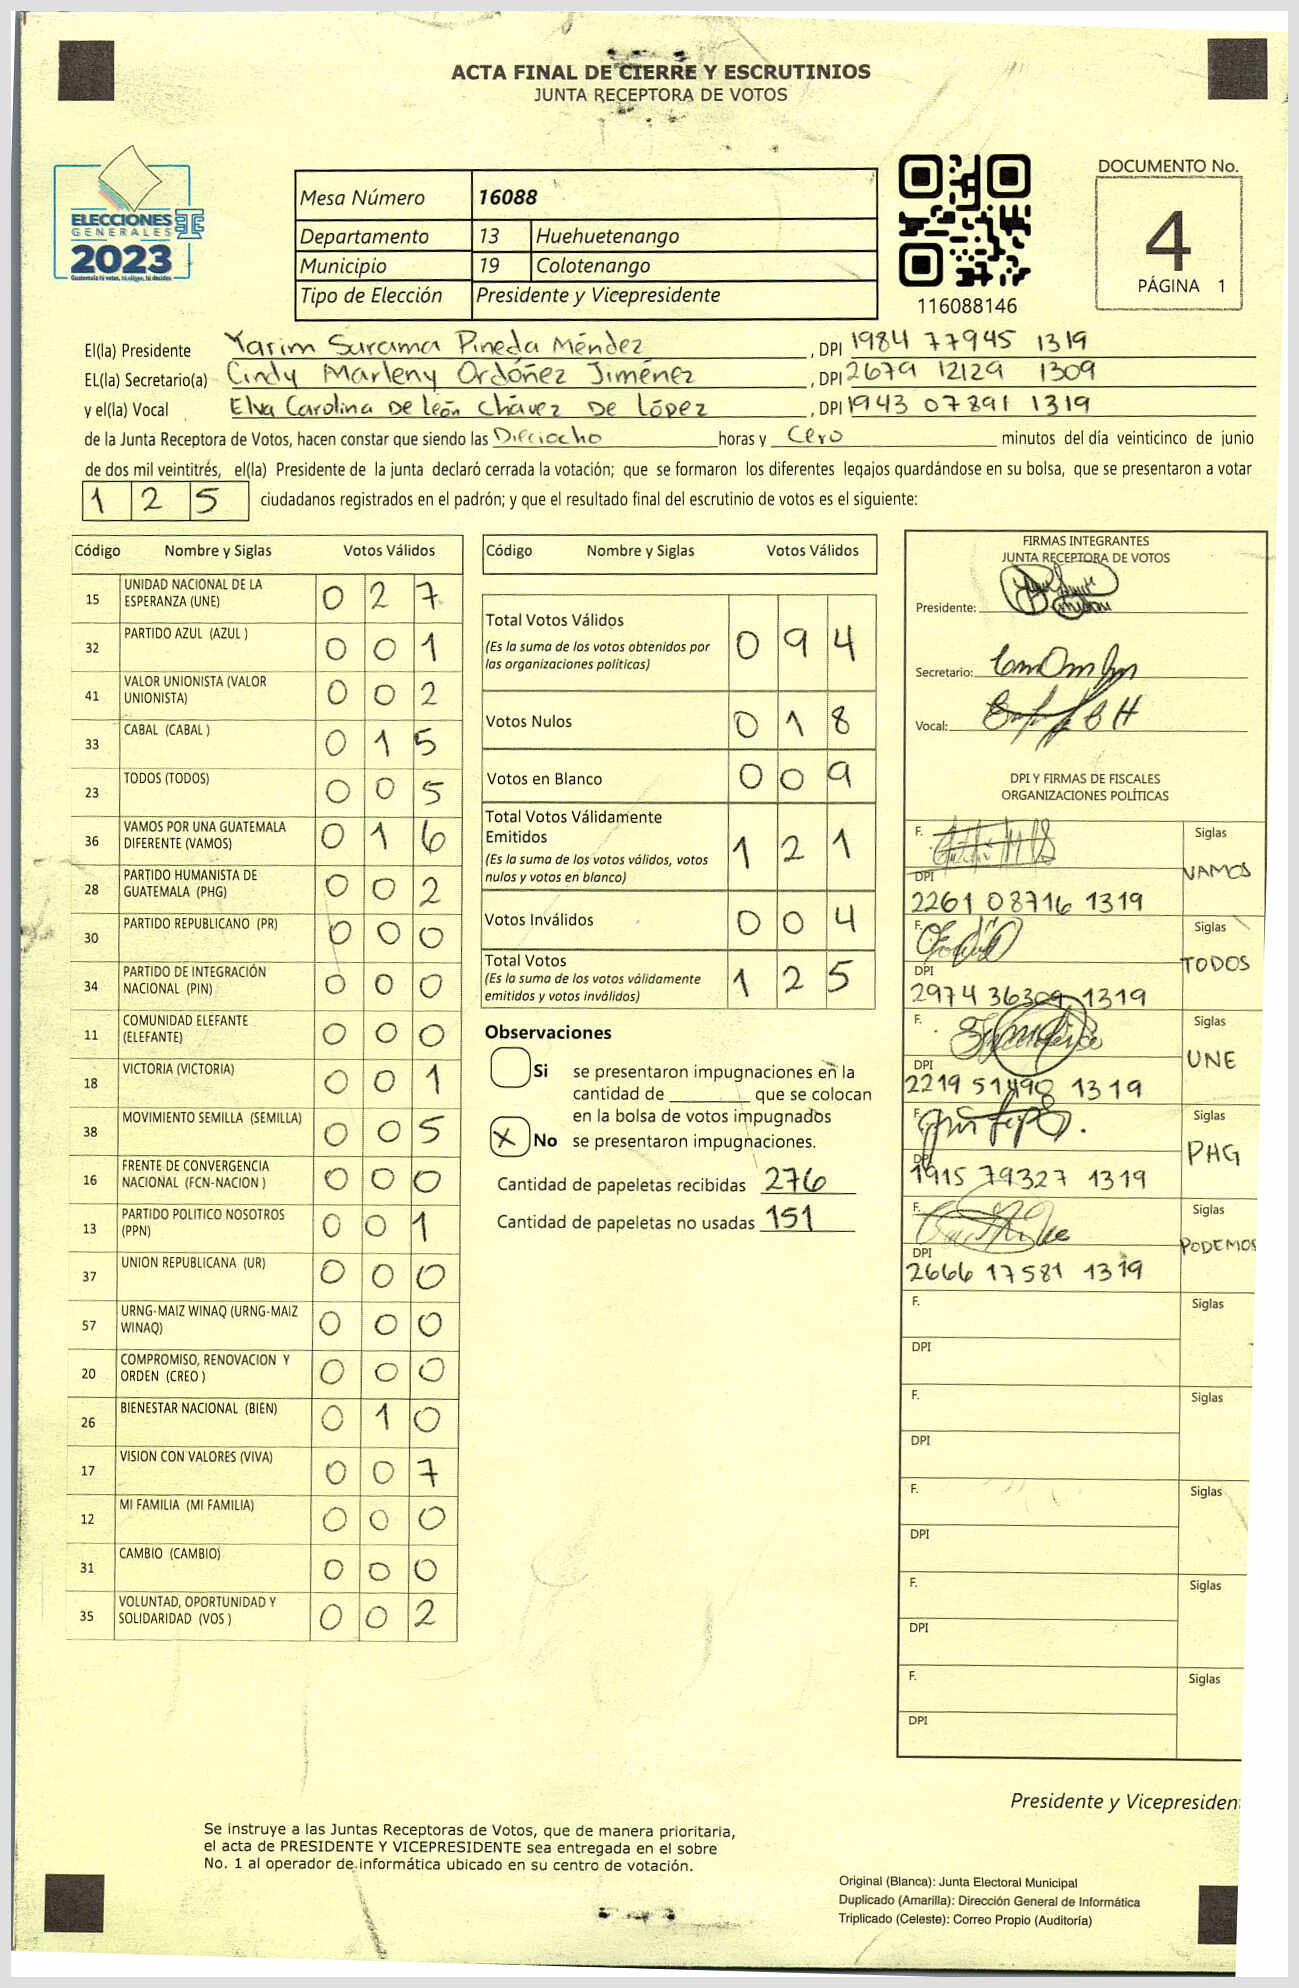 ACTA FINAL DE CIERRE Y ESCRUTINIOS
JUNTA RECEPTORA DE VOTOS
ELECCIONES
GENERALES
2023
Guatemala tú votas, tú eliges, tú decides
Mesa Número 16088
Departamento 13 Huehuetenango
Municipio 19 Colotenango
Tipo de Elección Presidente y Vicepresidente
116088146
DOCUMENTO No.
4
PÁGINA 1
El(la) Presidente Yarim Surama Pineda Méndez, DPI 1984 77945 1319
EL(la) Secretario(a) Cindy Marleny Ordóñez Jiménez, DPI 2679 12129 1309
y el(la) Vocal Elva Carolina De león Chávez De López, DPI 1943 07891 1319
de la Junta Receptora de Votos, hacen constar que siendo las Dieciocho horas y Cero minutos del día veinticinco de junio
de dos mil veintitrés, el(la) Presidente de la junta declaró cerrada la votación; que se formaron los diferentes legajos guardándose en su bolsa, que se presentaron a votar
1 2 5 ciudadanos registrados en el padrón; y que el resultado final del escrutinio de votos es el siguiente:
Código Nombre y Siglas Votos Válidos
15 UNIDAD NACIONAL DE LA ESPERANZA (UNE) 0 2 7
32 PARTIDO AZUL (AZUL ) 0 0 1
41 VALOR UNIONISTA (VALOR UNIONISTA) 0 0 2
33 CABAL (CABAL ) 0 1 5
23 TODOS (TODOS) 0 0 5
36 VAMOS POR UNA GUATEMALA DIFERENTE (VAMOS) 0 1 6
28 PARTIDO HUMANISTA DE GUATEMALA (PHG) 0 0 2
30 PARTIDO REPUBLICANO (PR) 0 0 0
34 PARTIDO DE INTEGRACIÓN NACIONAL (PIN) 0 0 0
11 COMUNIDAD ELEFANTE (ELEFANTE) 0 0 0
18 VICTORIA (VICTORIA) 0 0 1
38 MOVIMIENTO SEMILLA (SEMILLA) 0 0 5
16 FRENTE DE CONVERGENCIA NACIONAL (FCN-NACION ) 0 0 0
13 PARTIDO POLITICO NOSOTROS (PPN) 0 0 1
37 UNION REPUBLICANA (UR) 0 0 0
57 URNG-MAIZ WINAQ (URNG-MAIZ WINAQ) 0 0 0
20 COMPROMISO, RENOVACION Y ORDEN (CREO ) 0 0 0
26 BIENESTAR NACIONAL (BIEN) 0 1 0
17 VISION CON VALORES (VIVA) 0 0 7
12 MI FAMILIA (MI FAMILIA) 0 0 0
31 CAMBIO (CAMBIO) 0 0 0
35 VOLUNTAD, OPORTUNIDAD Y SOLIDARIDAD (VOS ) 0 0 2
Código Nombre y Siglas Votos Válidos
Total Votos Válidos 0 9 4
(Es la suma de los votos obtenidos por
las organizaciones políticas)
Votos Nulos 0 1 8
Votos en Blanco 0 0 9
Total Votos Válidamente
Emitidos 1 2 1
(Es la suma de los votos válidos, votos
nulos y votos en blanco)
Votos Inválidos 0 0 4
Total Votos 1 2 5
(Es la suma de los votos válidamente
emitidos y votos inválidos)
Observaciones
Si se presentaron impugnaciones en la
cantidad de ________ que se colocan
en la bolsa de votos impugnados
X No se presentaron impugnaciones.
Cantidad de papeletas recibidas 276
Cantidad de papeletas no usadas 151
FIRMAS INTEGRANTES
JUNTA RECEPTORA DE VOTOS
Presidente:
Secretario:
Vocal:
DPI Y FIRMAS DE FISCALES
ORGANIZACIONES POLÍTICAS
F. Siglas
VAMOS
DPI
2261 08716 1319
F. Siglas
TODOS
DPI
2974 36309 1319
F. Siglas
UNE
DPI
2219 51498 1319
F. Siglas
PHG
DPI
1915 79327 1319
F. Siglas
PODEMOS
DPI
2666 17581 1319
F. Siglas
DPI
F. Siglas
DPI
F. Siglas
DPI
F. Siglas
DPI
F. Siglas
DPI
Presidente y Vicepresiden
Se instruye a las Juntas Receptoras de Votos, que de manera prioritaria,
el acta de PRESIDENTE Y VICEPRESIDENTE sea entregada en el sobre
No. 1 al operador de informática ubicado en su centro de votación.
Original (Blanca): Junta Electoral Municipal
Duplicado (Amarilla): Dirección General de Informática
Triplicado (Celeste): Correo Propio (Auditoría)